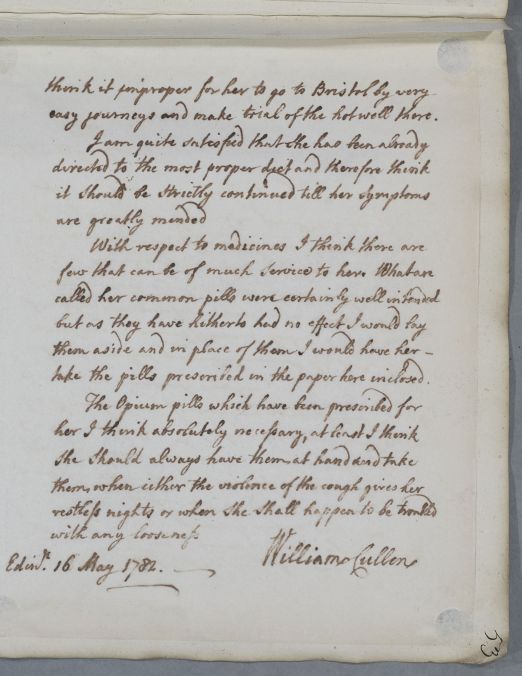 think it improper for her to go to Bristol by very
easy journeys and make trial of the hot well there.
I am quite satisfied that she has been already
directed to the most proper diet and therefore think
it should be strictly continued till her symptoms
are greatly mended
With respect to medicines I think there are
few that can be of much service to her. What are
called her common pills were certainly well intended
but as they have hitherto had no effect I would lay
them aside and in place of them I would have her –
take the pills prescribed in the paper here inclosed.
The Opium pills which have been prescribed for
her I think absolutely necessary, at least I think
she should always have them at hand and take
them, when either the violence of the cough gives her
restless nights or when she shall happen to be troubled
with any looseness
William Cullen
Edinr. 16 May 1782.